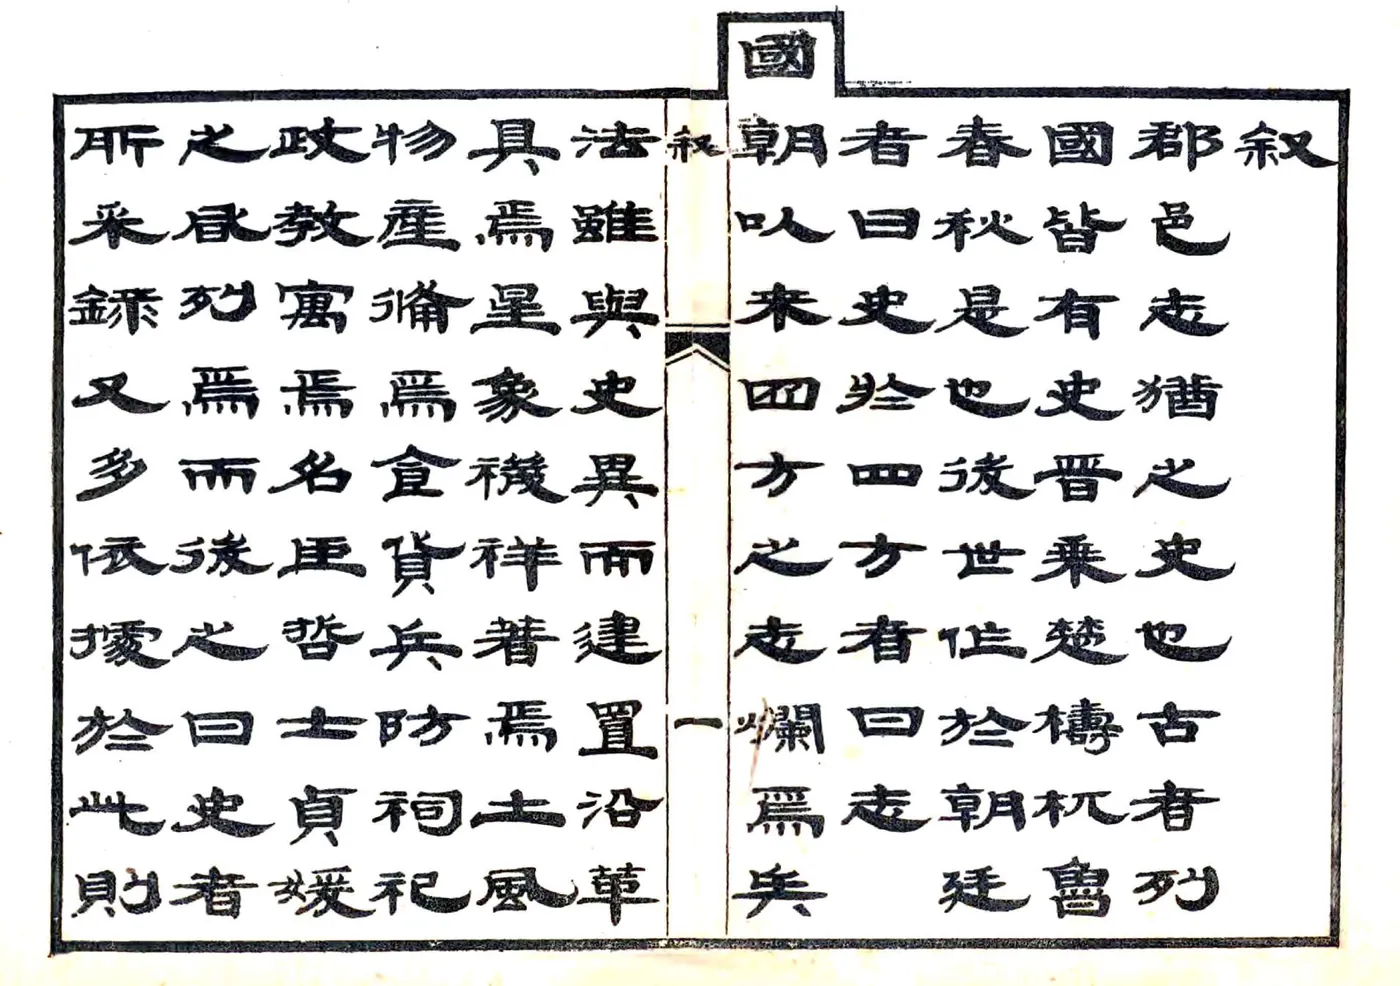 叙
郡邑志猶之史也古者列
國皆有史晋乗楚檮杌魯
春秋是也後世作於朝廷
者曰史於四方者曰志
國朝以来四方之志爛焉矣
叙
一
法雖與史異而建置沿革
具焉星象禨祥著焉土風
物産備焉食貨兵防祠祀
政教寓焉名臣哲士貞媛
之列焉而後之曰史者
所采録又多依據於此則